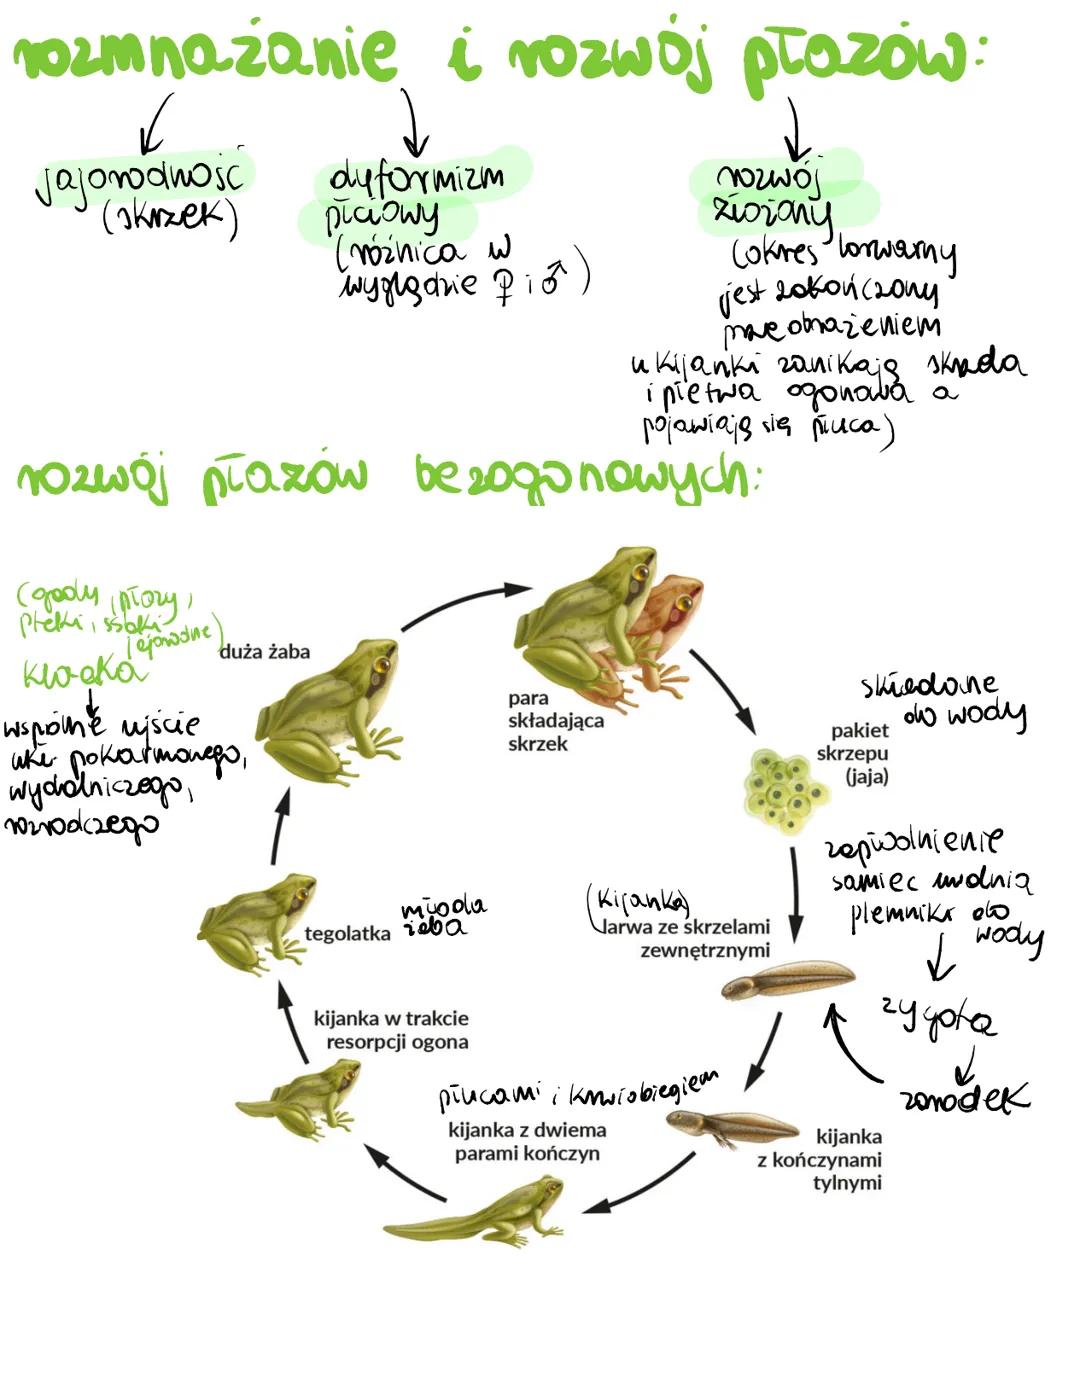 rozmnażanie i rozwój płazów:
jajorodność
(skrzek)
dyformizm
płciowy
(różnica w
wyglądzie ♀ i ♂)
rozwój
złożony
(okres larwarny
jest zakończony
przeobrażeniem
u kijanki zanikają skrzela
i płetwa ogonowa a
pojawiają się płuca)
rozwój płazów bezogonowych:
(gady, płazy,
ptaki, ssaki
jajorodne)
kloaka
wspólne ujście
ukł. pokarmowego,
wydalniczego,
rozrodczego
duża żaba
para
składająca
skrzek
składane
do wody
pakiet
skrzepu
(jaja)
zapłodnienie
samiec uwalnia
plemniki do
wody
zygota
zarodek
(kijanka)
larwa ze skrzelami
zewnętrznymi
kijanka
z kończynami
tylnymi
płucami i krwiobiegiem
kijanka z dwiema
parami kończyn
kijanka w trakcie
resorpcji ogona
tegolatka
młoda
żaba